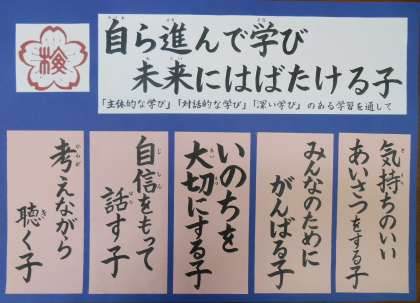 検
自ら進んで学び
未来にはばたける子
「主体的な学び」「対話的な学び」「深い学び」のある学習を通して
気持ちのいい
あいさつをする子
みんなのために
がんばる子
いのちを
大切にする子
自信をもって
話す子
考えながら
聴く子